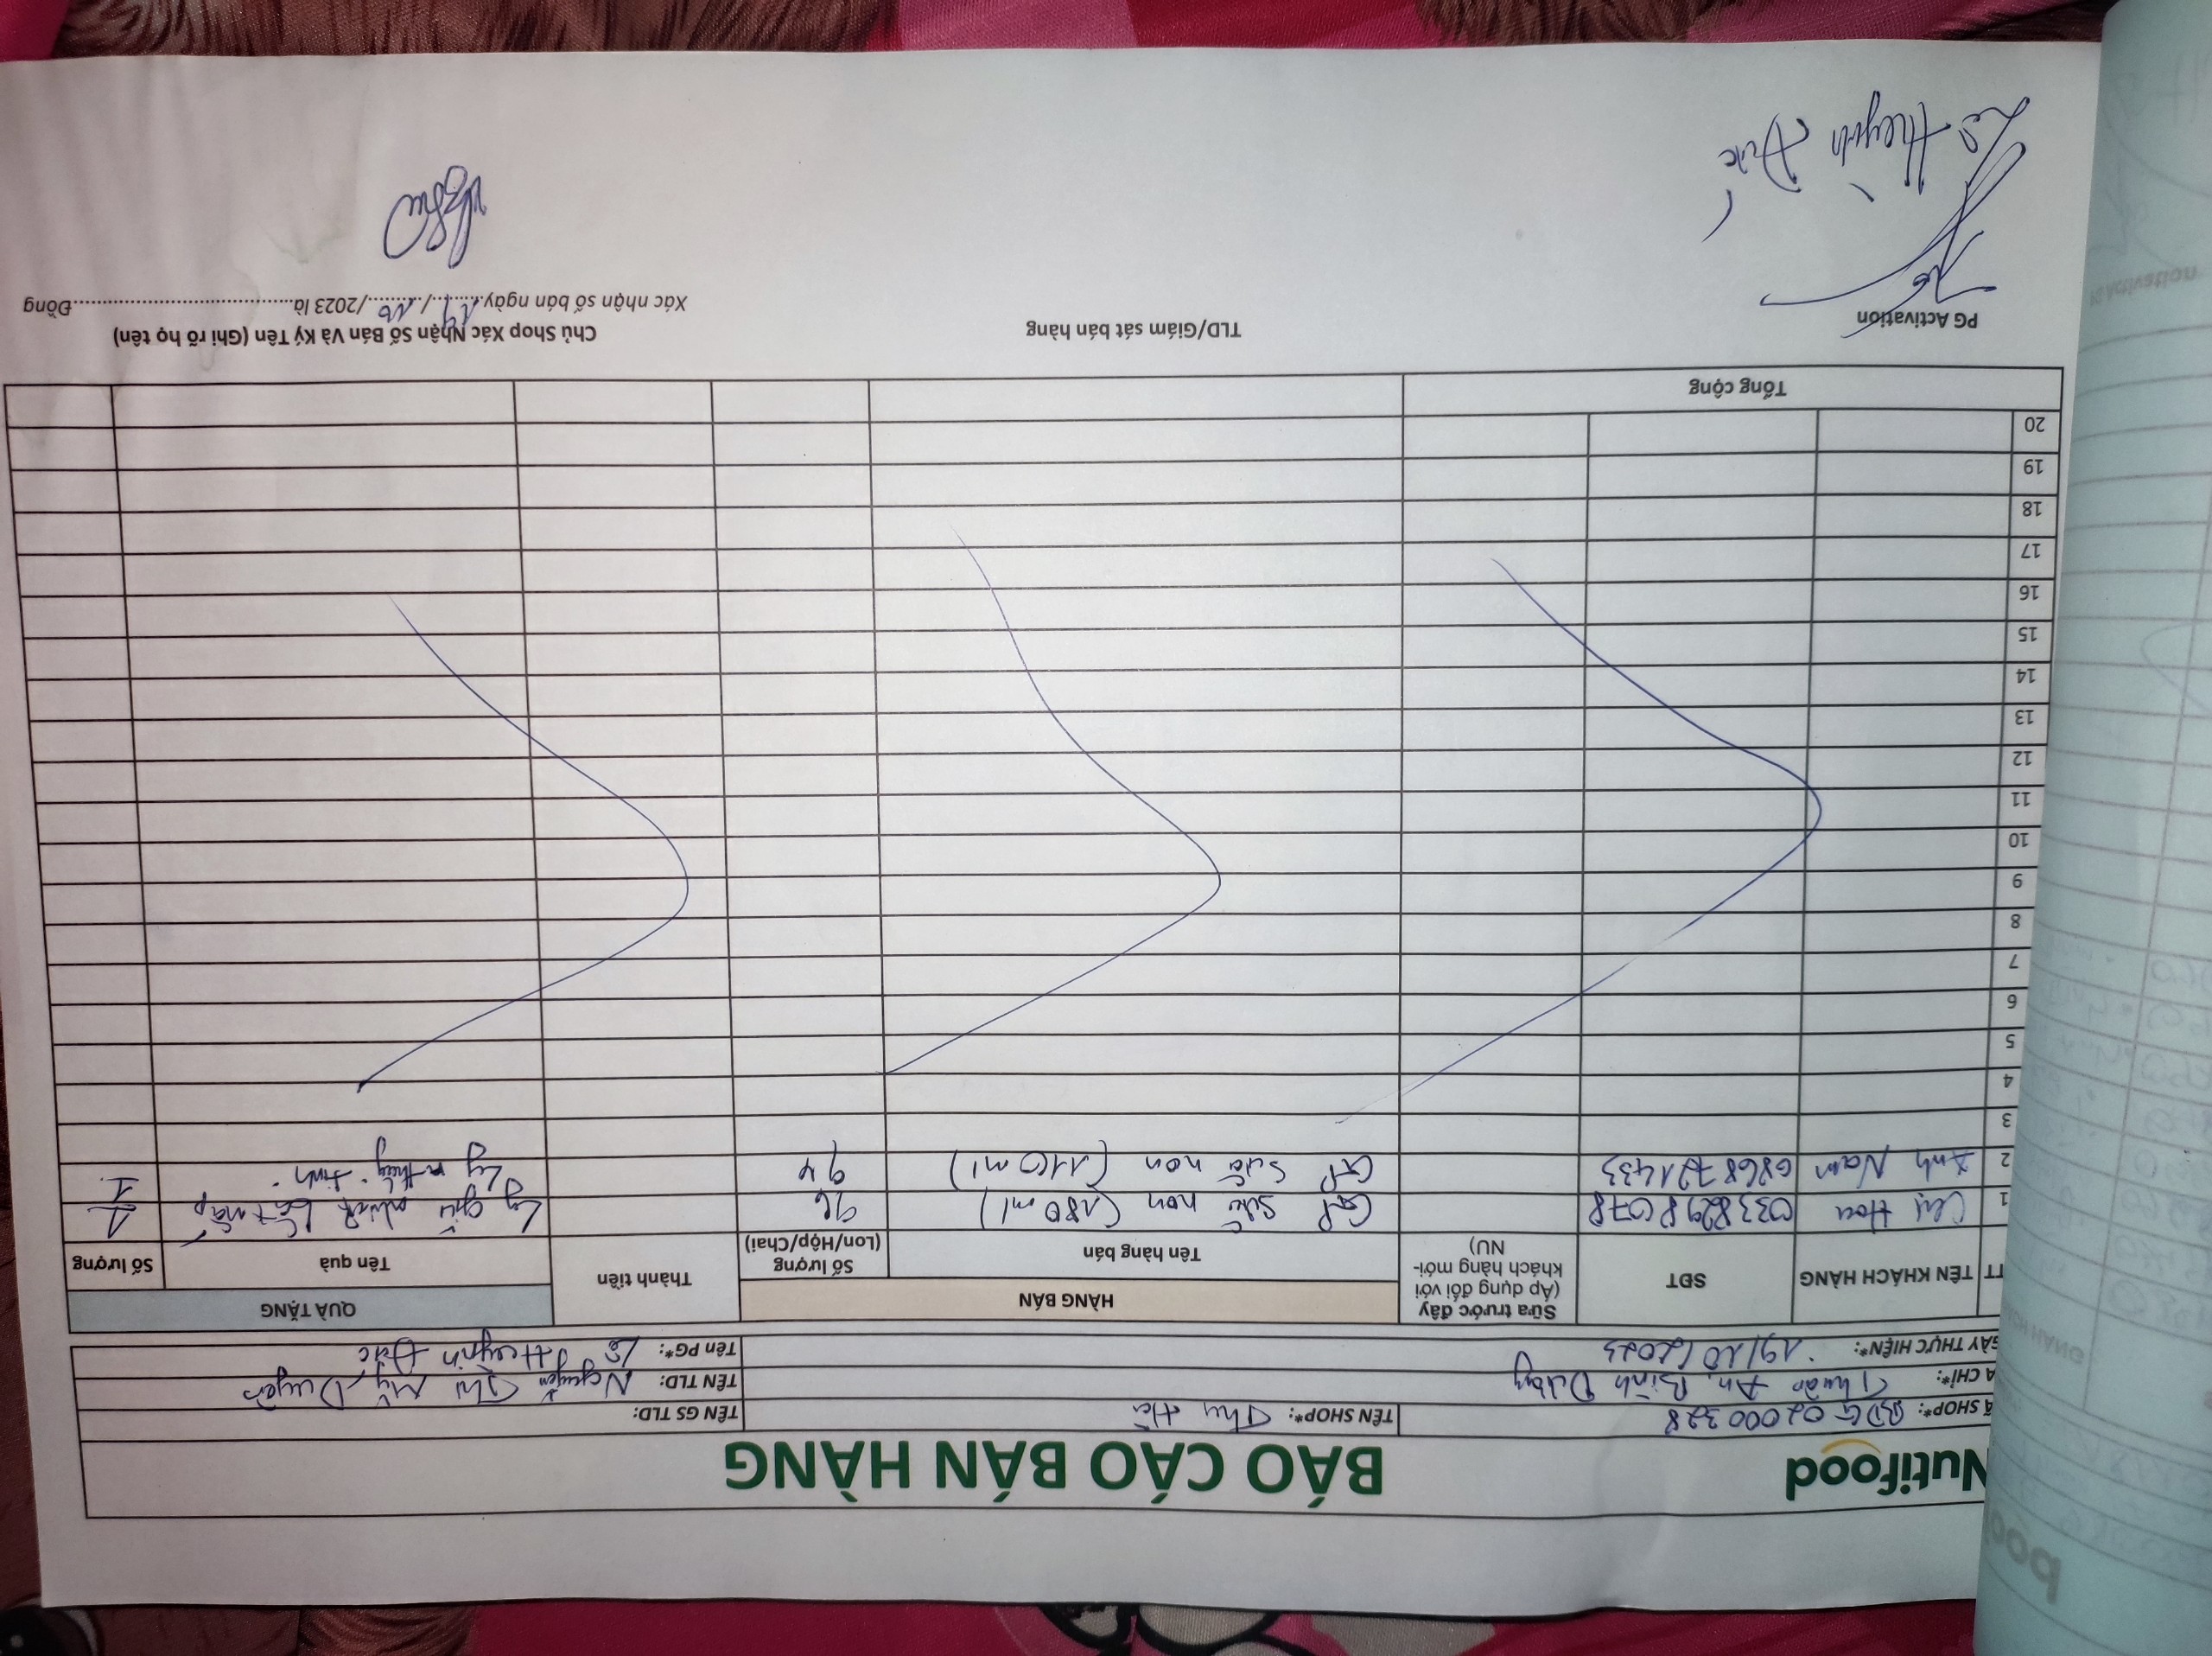 Nutifood
BÁO CÁO BÁN HÀNG
Ã SHOP*: BDG 02000328 TÊN SHOP*: Thu Hà TÊN GS TLD:
A CHỈ*: Thuận An, Bình Dương TÊN TLD: Nguyễn Thị Mỹ Duyên
GÀY THỰC HIỆN*: 19/10/2023 Tên PG*: Lê Huỳnh Đức
TT TÊN KHÁCH HÀNG SĐT Sữa trước đây (Áp dụng đối với khách hàng mới-NU) HÀNG BÁN Thành tiền QUÀ TẶNG
Tên hàng bán Số lượng (Lon/Hộp/Chai) Tên quà Số lượng
1 Chị Hoa 0338298078 GP sữa non (180ml) 96 Ly giữ nhiệt 1
2 Anh Nam 0868721433 GP sữa non (110ml) 94 Ly thủy tinh 1
3
4
5
6
7
8
9
10
11
12
13
14
15
16
17
18
19
20
Tổng cộng
PG Activation TLD/Giám sát bán hàng Chủ Shop Xác Nhận Số Bán Và Ký Tên (Ghi rõ họ tên)
Xác nhận số bán ngày 19/10/2023 là..........Đồng
Lê Huỳnh Đức